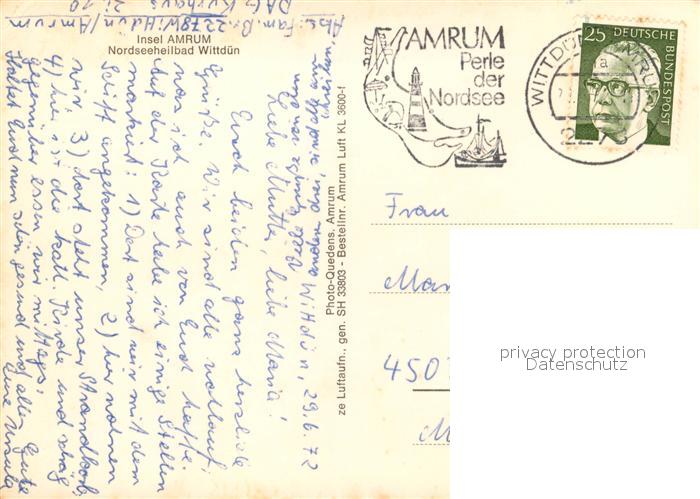 Abs. Fam. Br
2278 Wittdün/Amrum
DAG Kurhaus
Zi. 10
Insel AMRUM
Nordseeheilbad Wittdün
Wittdün, 29.6.72
Liebe Mutter, liebe Maria!
Euch beiden ganz herzliche
Grüße. Wir sind alle wohlauf,
was ich auch von Euch hoffe.
Auf der Karte habe ich einige Stellen
markiert: 1) Dort sind wir mit dem
Schiff angekommen, 2) hier wohnen
wir 3) dort steht unser Strandkorb,
4) hier ist die kath. Kirche und schräg
gegenüber essen wir mittags.
Haltet Euch nun schön gesund und alles Gute
Eure Ursula
Photo-Quedens, Amrum
ze Luftaufn., gen. SH 33803 - Bestellnr. Amrum Luft KL 3600-f
AMRUM
Perle
der
Nordsee
WITTDÜN
a
2278
25 DEUTSCHE
BUNDESPOST
Frau
Mari
450
privacy protection
Datenschutz